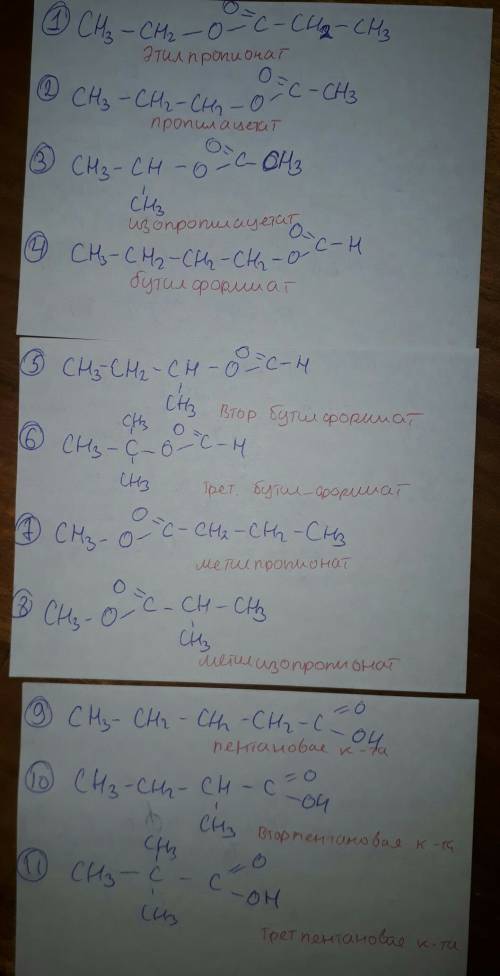 1 CH3 – CH2 – O – C(=O) – CH2 – CH3
Этилпропионат
2 CH3 – CH2 – CH2 – O – C(=O) – CH3
пропилацетат
3 CH3 – CH(CH3) – O – C(=O) – CH3
изопропилацетат
4 CH3 – CH2 – CH2 – CH2 – O – C(=O) – H
бутилформиат
5 CH3 – CH2 – CH(CH3) – O – C(=O) – H
Втор бутилформиат
6 CH3 – C(CH3)(CH3) – O – C(=O) – H
Трет. бутил-формиат
7 CH3 – O – C(=O) – CH2 – CH2 – CH3
метилпропионат
8 CH3 – O – C(=O) – CH(CH3) – CH3
метилизопропионат
9 CH3 – CH2 – CH2 – CH2 – C(=O) – OH
пентановая к-та
10 CH3 – CH2 – CH(CH3) – C(=O) – OH
Вторпентановая к-та
11 CH3 – C(CH3)(CH3) – C(=O) – OH
Третпентановая к-та